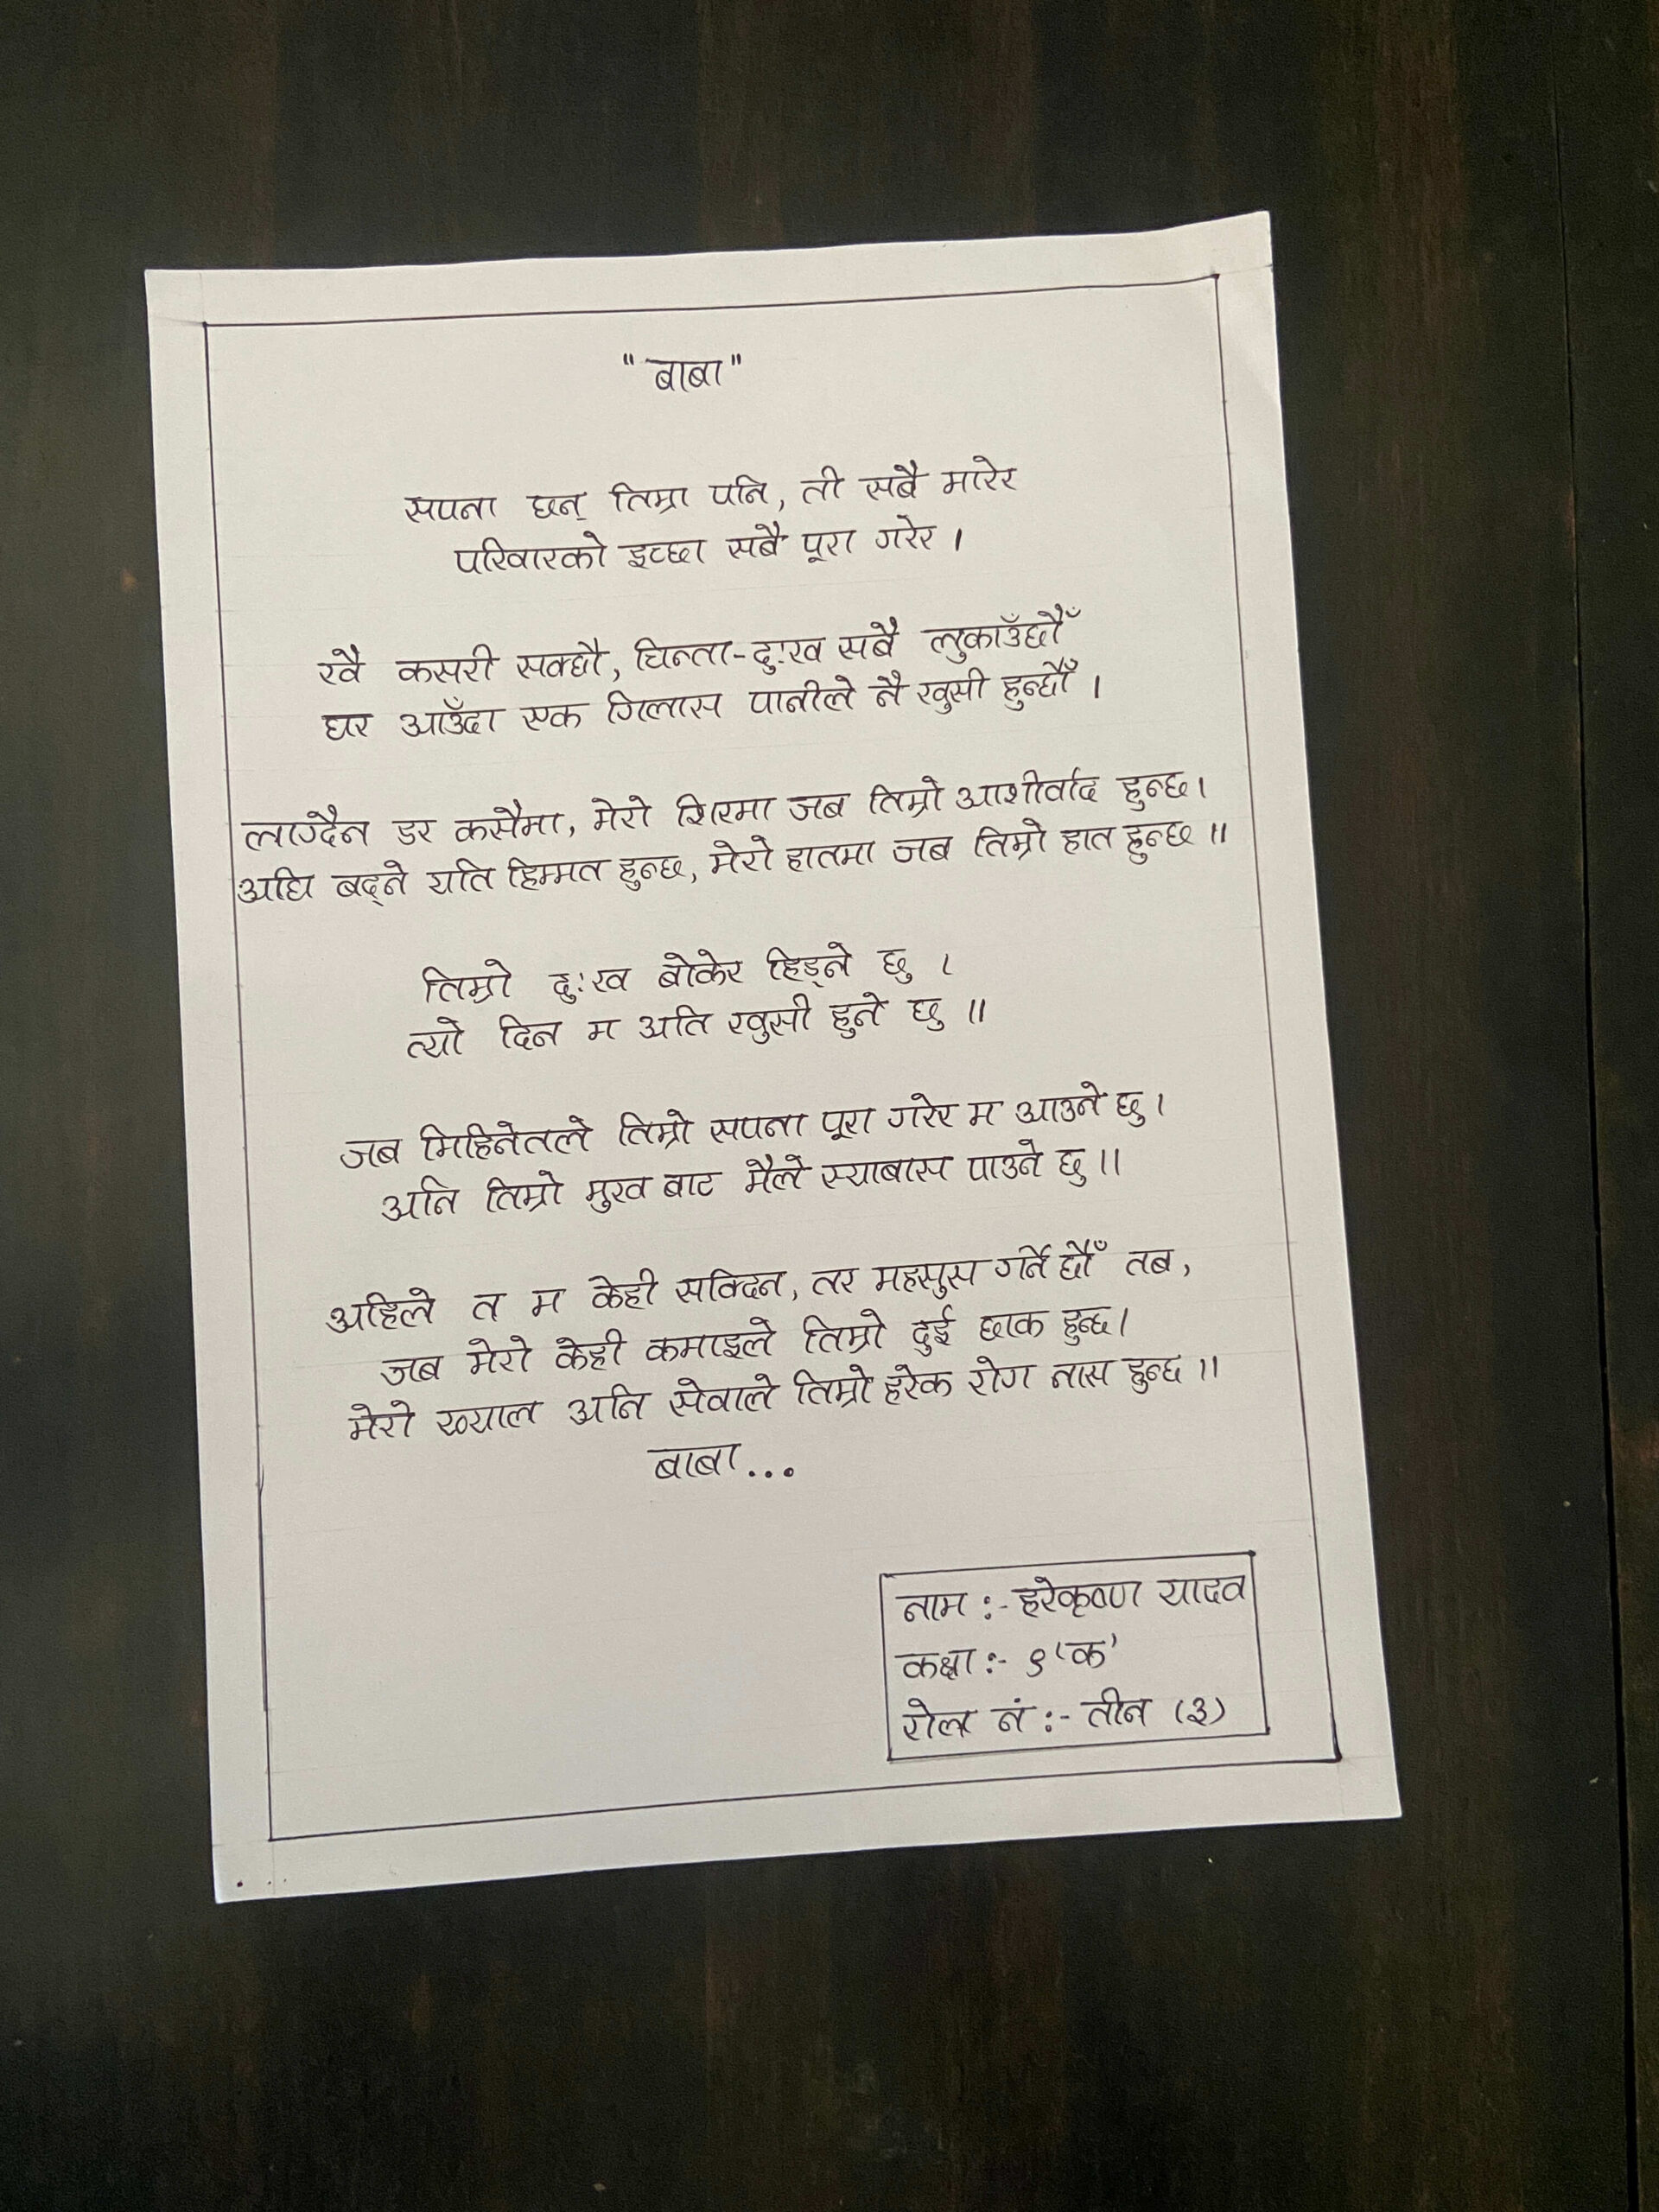 "बाबा"
सपना छन् तिम्रा पनि, ती सबै मारेर
परिवारको इच्छा सबै पूरा गरेर ।
खै कसरी सक्छौ, चिन्ता-दुःख सबै लुकाउँछौँ
घर आउँदा एक गिलास पानीले नै खुसी हुन्छौँ ।
लाग्दैन डर कसैमा, मेरो शिरमा जब तिम्रो आशीर्वाद हुन्छ।
अघि बढ्ने यति हिम्मत हुन्छ, मेरो हातमा जब तिम्रो हात हुन्छ ॥
तिम्रो दुःख बोकेर हिड्ने छु ।
त्यो दिन म अति खुसी हुने छु ॥
जब मिहिनेतले तिम्रो सपना पूरा गरेर म आउने छु ।
अनि तिम्रो मुख बाट मैले स्याबास पाउने छु ॥
अहिले त म केही सक्दिन, तर महसुस गर्ने छौँ तब,
जब मेरो केही कमाइले तिम्रो दुई छाक हुन्छ।
मेरो ख्याल अनि सेवाले तिम्रो हरेक रोग नास हुन्छ ॥
बाबा...
नाम :- हरेकृष्ण यादव
कक्षा :- ९ 'क'
रोल नं :- तीन (३)